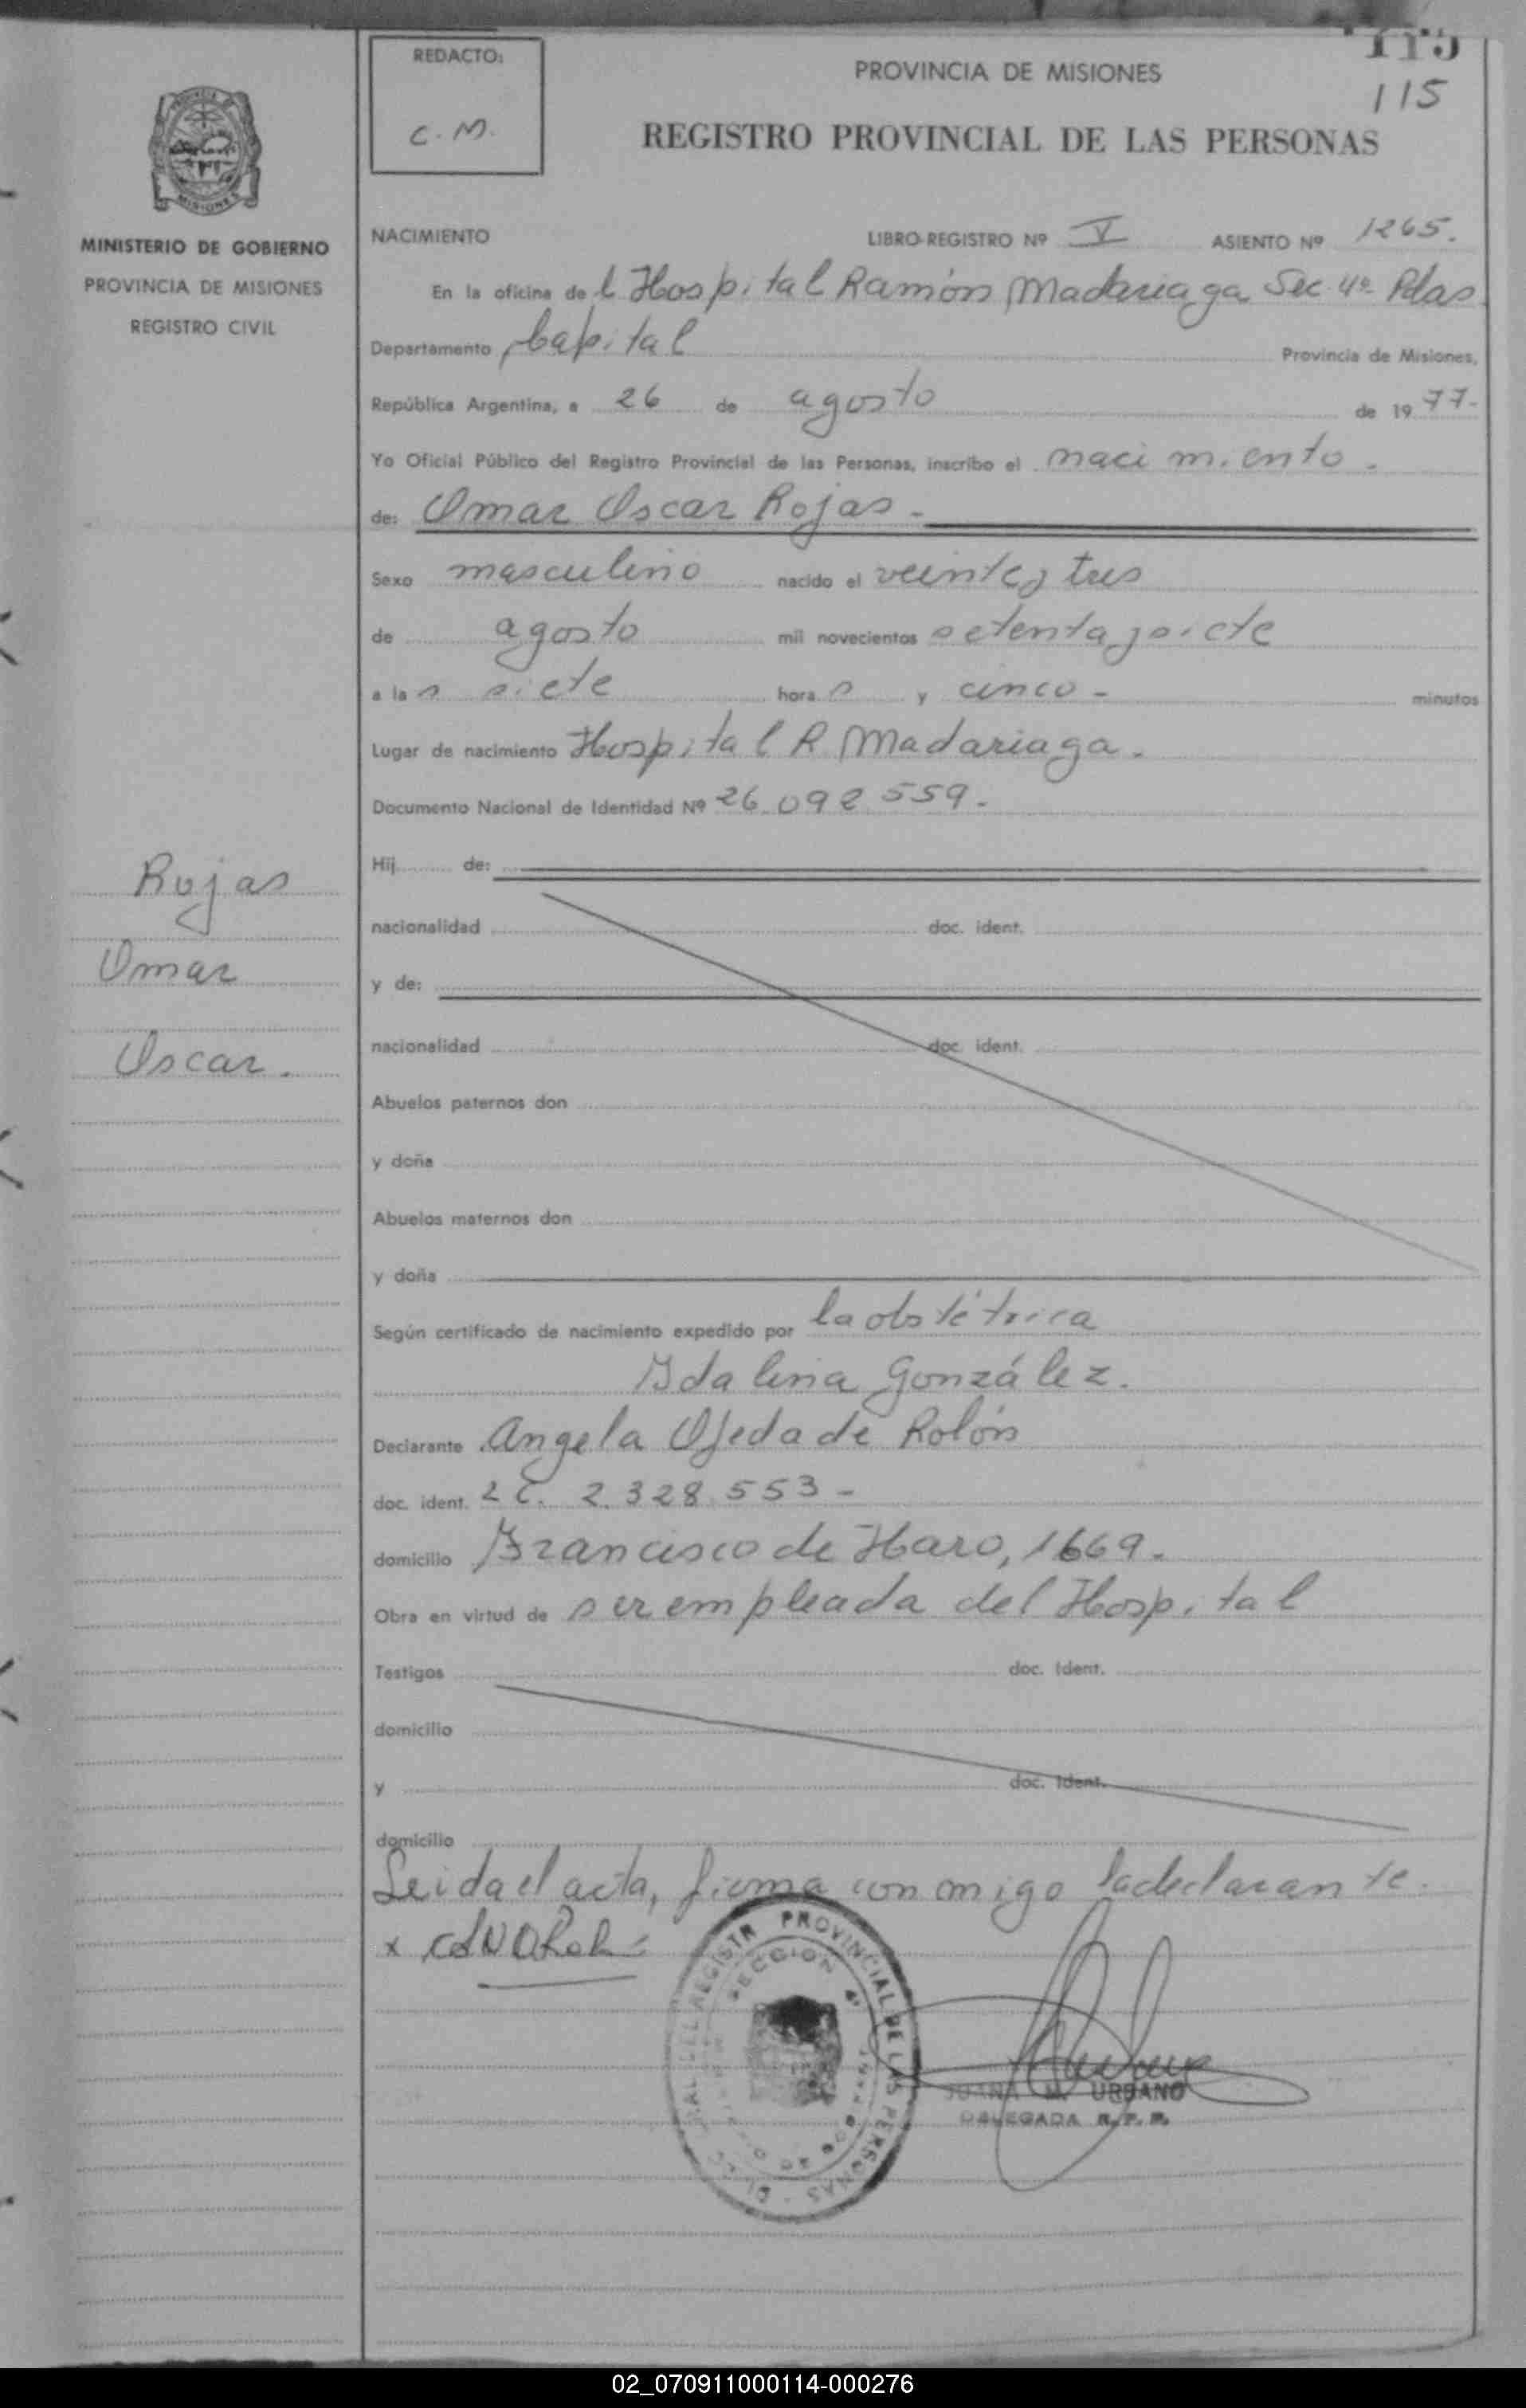 115
REDACTO:
C. M.
PROVINCIA DE MISIONES
115
REGISTRO PROVINCIAL DE LAS PERSONAS
MISIONES
MINISTERIO DE GOBIERNO
PROVINCIA DE MISIONES
REGISTRO CIVIL
NACIMIENTO LIBRO-REGISTRO Nº V ASIENTO Nº 1265.
En la oficina del Hospital Ramón Madariaga Sec. 4ª Pdas
Departamento Capital Provincia de Misiones,
República Argentina, a 26 de agosto de 1977-
Yo Oficial Público del Registro Provincial de las Personas, inscribo el nacimiento.
de: Omar Oscar Rojas.-
Sexo masculino nacido el veintey tres
de agosto mil novecientos setenta y siete
a las siete horas y cinco- minutos
Lugar de nacimiento Hospital R. Madariaga.
Documento Nacional de Identidad Nº 26.092.559.
Hij de:
nacionalidad doc. ident.
y de:
nacionalidad doc. ident.
Abuelos paternos don
y doña
Abuelos maternos don
y doña
Rojas
Omar
Oscar.
Según certificado de nacimiento expedido por la obstétrica
Idalina González.
Declarante Angela Ojeda de Rolón
doc. ident. L C. 2.328.553-
domicilio Francisco de Haro, 1669.
Obra en virtud de ser empleada del Hospital
Testigos doc. Ident.
domicilio
y doc. Ident.
domicilio
Leida el acta, firma conmigo la declarante.
REGISTR PROVINCIAL DE LAS PERSONAS
SECCION 4ª
JUANA M. URBANO
DELEGADA R. P. P.
02_070911000114-000276